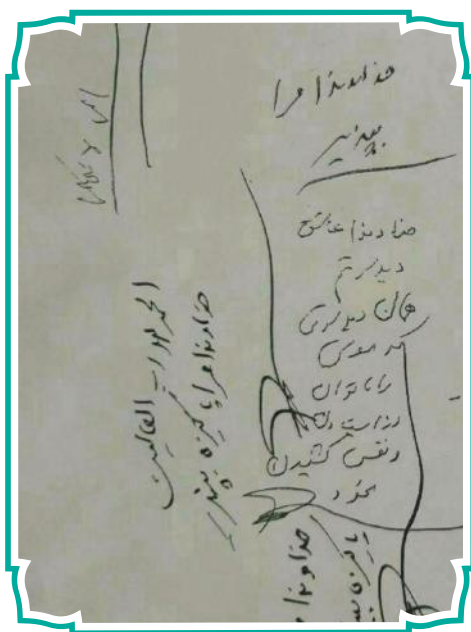 خداوندا مرا
بپذیر
خداوندا عاشق
دیدارتم
همان دیداری
که موسی
را ناتوان
از ایستادن
و نفس کشیدن
نمود
الحمدلله رب العالمین
خداوندا مرا پاکیزه بپذیر
خداوندا م
پاکیزه بپذ